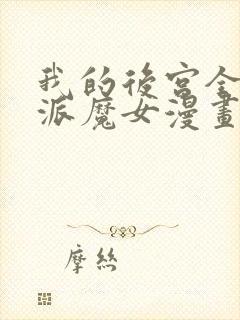 我的後宮全
派魔女漫畫
摩絲